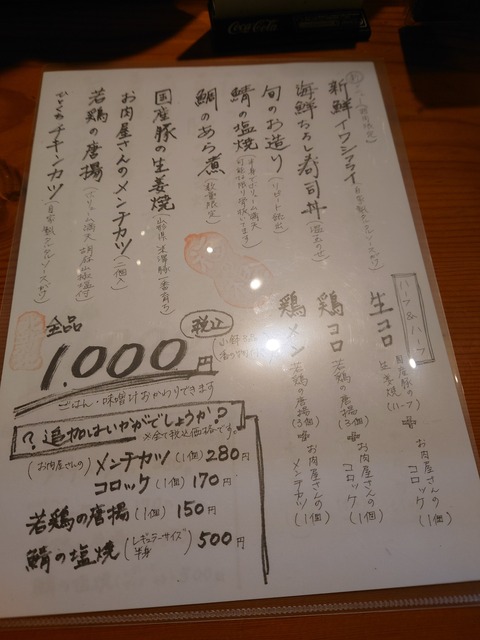 新鮮イワシフライ
海鮮ちらし寿司丼(温玉のせ)
旬のお造り(リピート続出)
鯖の塩焼
鯛のあら煮(数量限定)
国産豚の生姜焼
お肉屋さんのメンチカツ(二個入)
若鶏の唐揚
チキンカツ
ハーフ&ハーフ
生コロ
国産豚の生姜焼(ハーフ)+お肉屋さんのコロッケ(1個)
鶏コロ
若鶏の唐揚(3個)+お肉屋さんのコロッケ(1個)
鶏メン
若鶏の唐揚(3個)+お肉屋さんのメンチカツ(1個)
全品
1.000円
税込
ごはん・味噌汁おかわりできます
?追加はいかがでしょうか?
※全て税込価格です。
(お肉屋さんの)メンチカツ(1個)280円
コロッケ(1個)170円
若鶏の唐揚(1個)150円
鯖の塩焼(レギュラーサイズ半身)500円
Coca-Cola